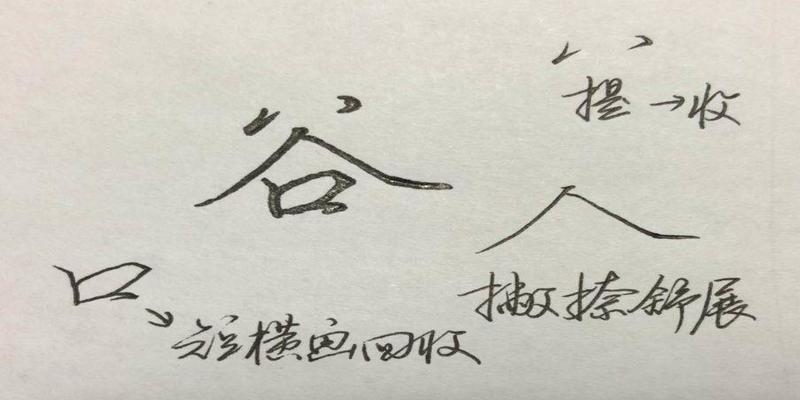 提→收
谷
人
撇捺舒展
口
短横画回收